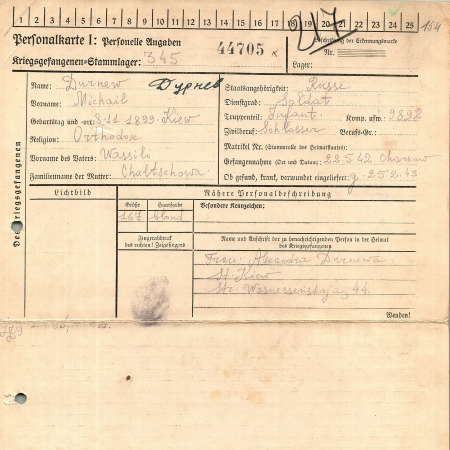 1 2 3 4 5 6 7 8 9 10 11 12 13 14 15 16 17 18 19 20 21 22 23 24 25
217
154
Personalkarte I: Personelle Angaben
44705 K
Beschriftung der Erkennungsmarke
Kriegsgefangenen-Stammlager: 345
Nr.
Lager:
Des Kriegsgefangenen
Name: Durnew Дурнев
Vorname: Michail
Geburtstag und -ort: 8.11.1899 Kiew
Religion: Orthodox
Vorname des Vaters: Wassili
Familienname der Mutter: Chaltschowa
Staatsangehörigkeit: Russe
Dienstgrad: Soldat
Truppenteil: Infant. Komp. usw. 9892
Zivilberuf: Schlosser Berufs-Gr.:
Matrikel Nr. (Stammrolle des Heimatstaates):
Gefangennahme (Ort und Datum): 22.5.42 Charkow
Ob gesund, krank, verwundet eingeliefert: g. 25.2.43
Lichtbild
Nähere Personalbeschreibung
Größe
Haarfarbe
Besondere Kennzeichen:
167 blond
Fingerabdruck
des rechten ! Zeigefingers
Name und Anschrift der zu benachrichtigenden Person in der Heimat
des Kriegsgefangenen
Frau: Alexandra Durnewa
St. Kiew
Str. Wosnessenskaja 44.
Wenden!